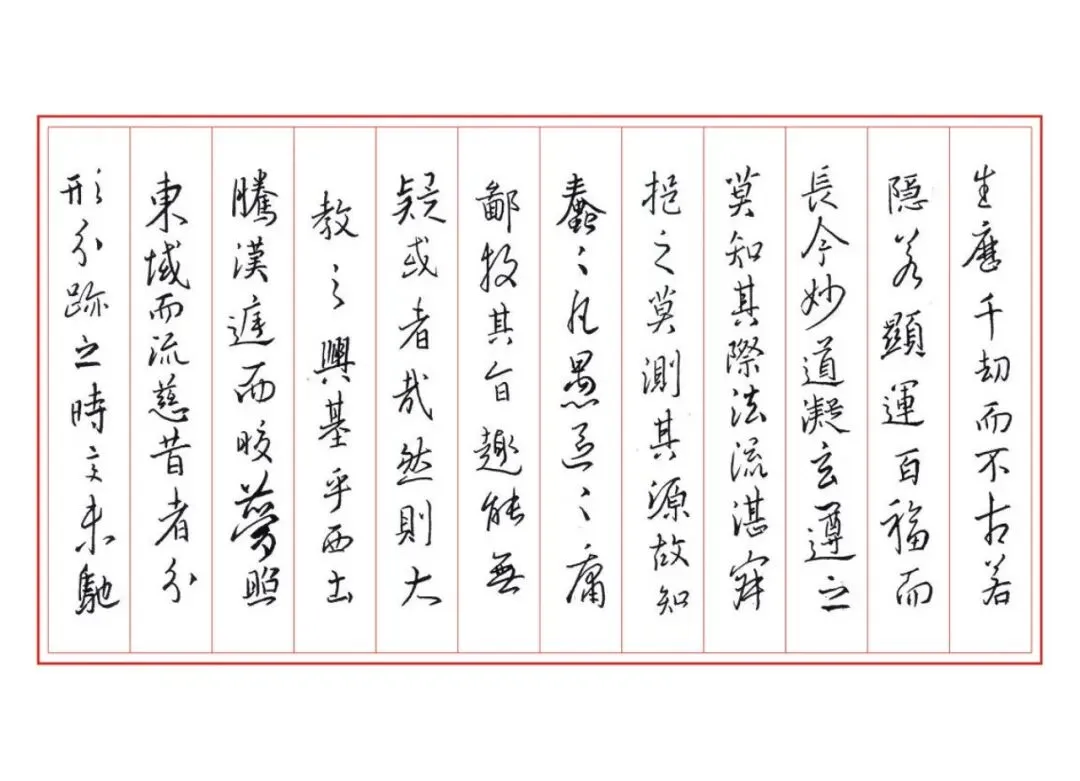 生歷千劫而不古若
隱若顯運百福而
長今妙道凝玄遵之
莫知其際法流湛寂
挹之莫測其源故知
蠢々凡愚區々庸
鄙投其旨趣能無
疑或者哉然則大
教之興基乎西土
騰漢庭而皎夢照
東域而流慈昔者分
形分跡之時言未馳